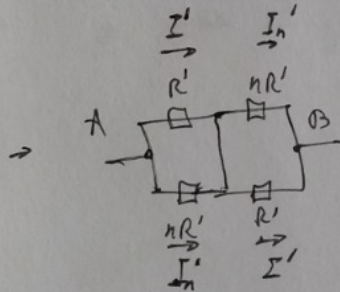 I' In'
R' nR'
A B
nR' R'
In' I'